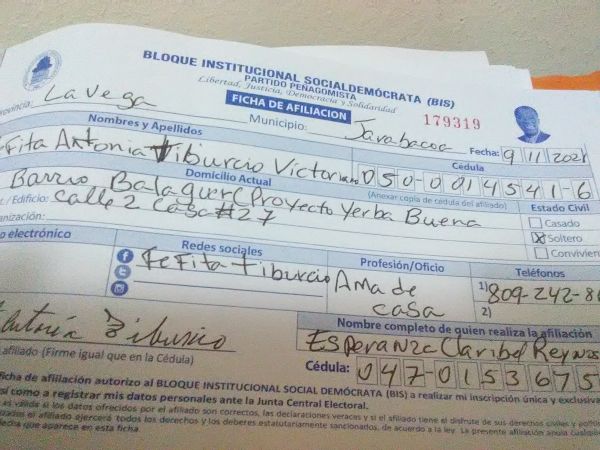 BLOQUE INSTITUCIONAL SOCIALDEMÓCRATA (BIS)
PARTIDO PEÑAGOMISTA
Libertad, Justicia, Democracia y Solidaridad
FICHA DE AFILIACION
179319
Provincia: La Vega
Municipio: Jarabacoa
Fecha: 9 11 2021
Nombres y Apellidos
Cédula
Antonia Tiburcio Victoriano 050-0014541-6
Domicilio Actual
(Anexar copia de cédula del afiliado)
Estado Civil
Barrio Balaguer (Proyecto Yerba Buena
/ Edificio: Calle 2 Casa #27
Casado
Soltero
Convivien
electrónico
Redes sociales
Profesión/Oficio
Teléfonos
Fefita tiburcio
Ama de
casa
1) 809-242-8
2)
Nombre completo de quien realiza la afiliación
Esperanza Claribel Reynos
Tiburcio
afiliado (Firme igual que en la Cédula)
Cédula: 047-0153675
ficha de afiliación autorizo al BLOQUE INSTITUCIONAL SOCIAL DEMÓCRATA (BIS) a realizar mi inscripción única y exclusiva
así como a registrar mis datos personales ante la Junta Central Electoral.
es válida si los datos ofrecidos por el afiliado son correctos, las declaraciones veraces y si el afiliado tiene el disfrute de sus derechos civiles y
el afiliado ejercerá todos los derechos y los deberes estatutariamente sancionados, de acuerdo a la ley. La presente afiliación anula
fecha que aparece en esta ficha.